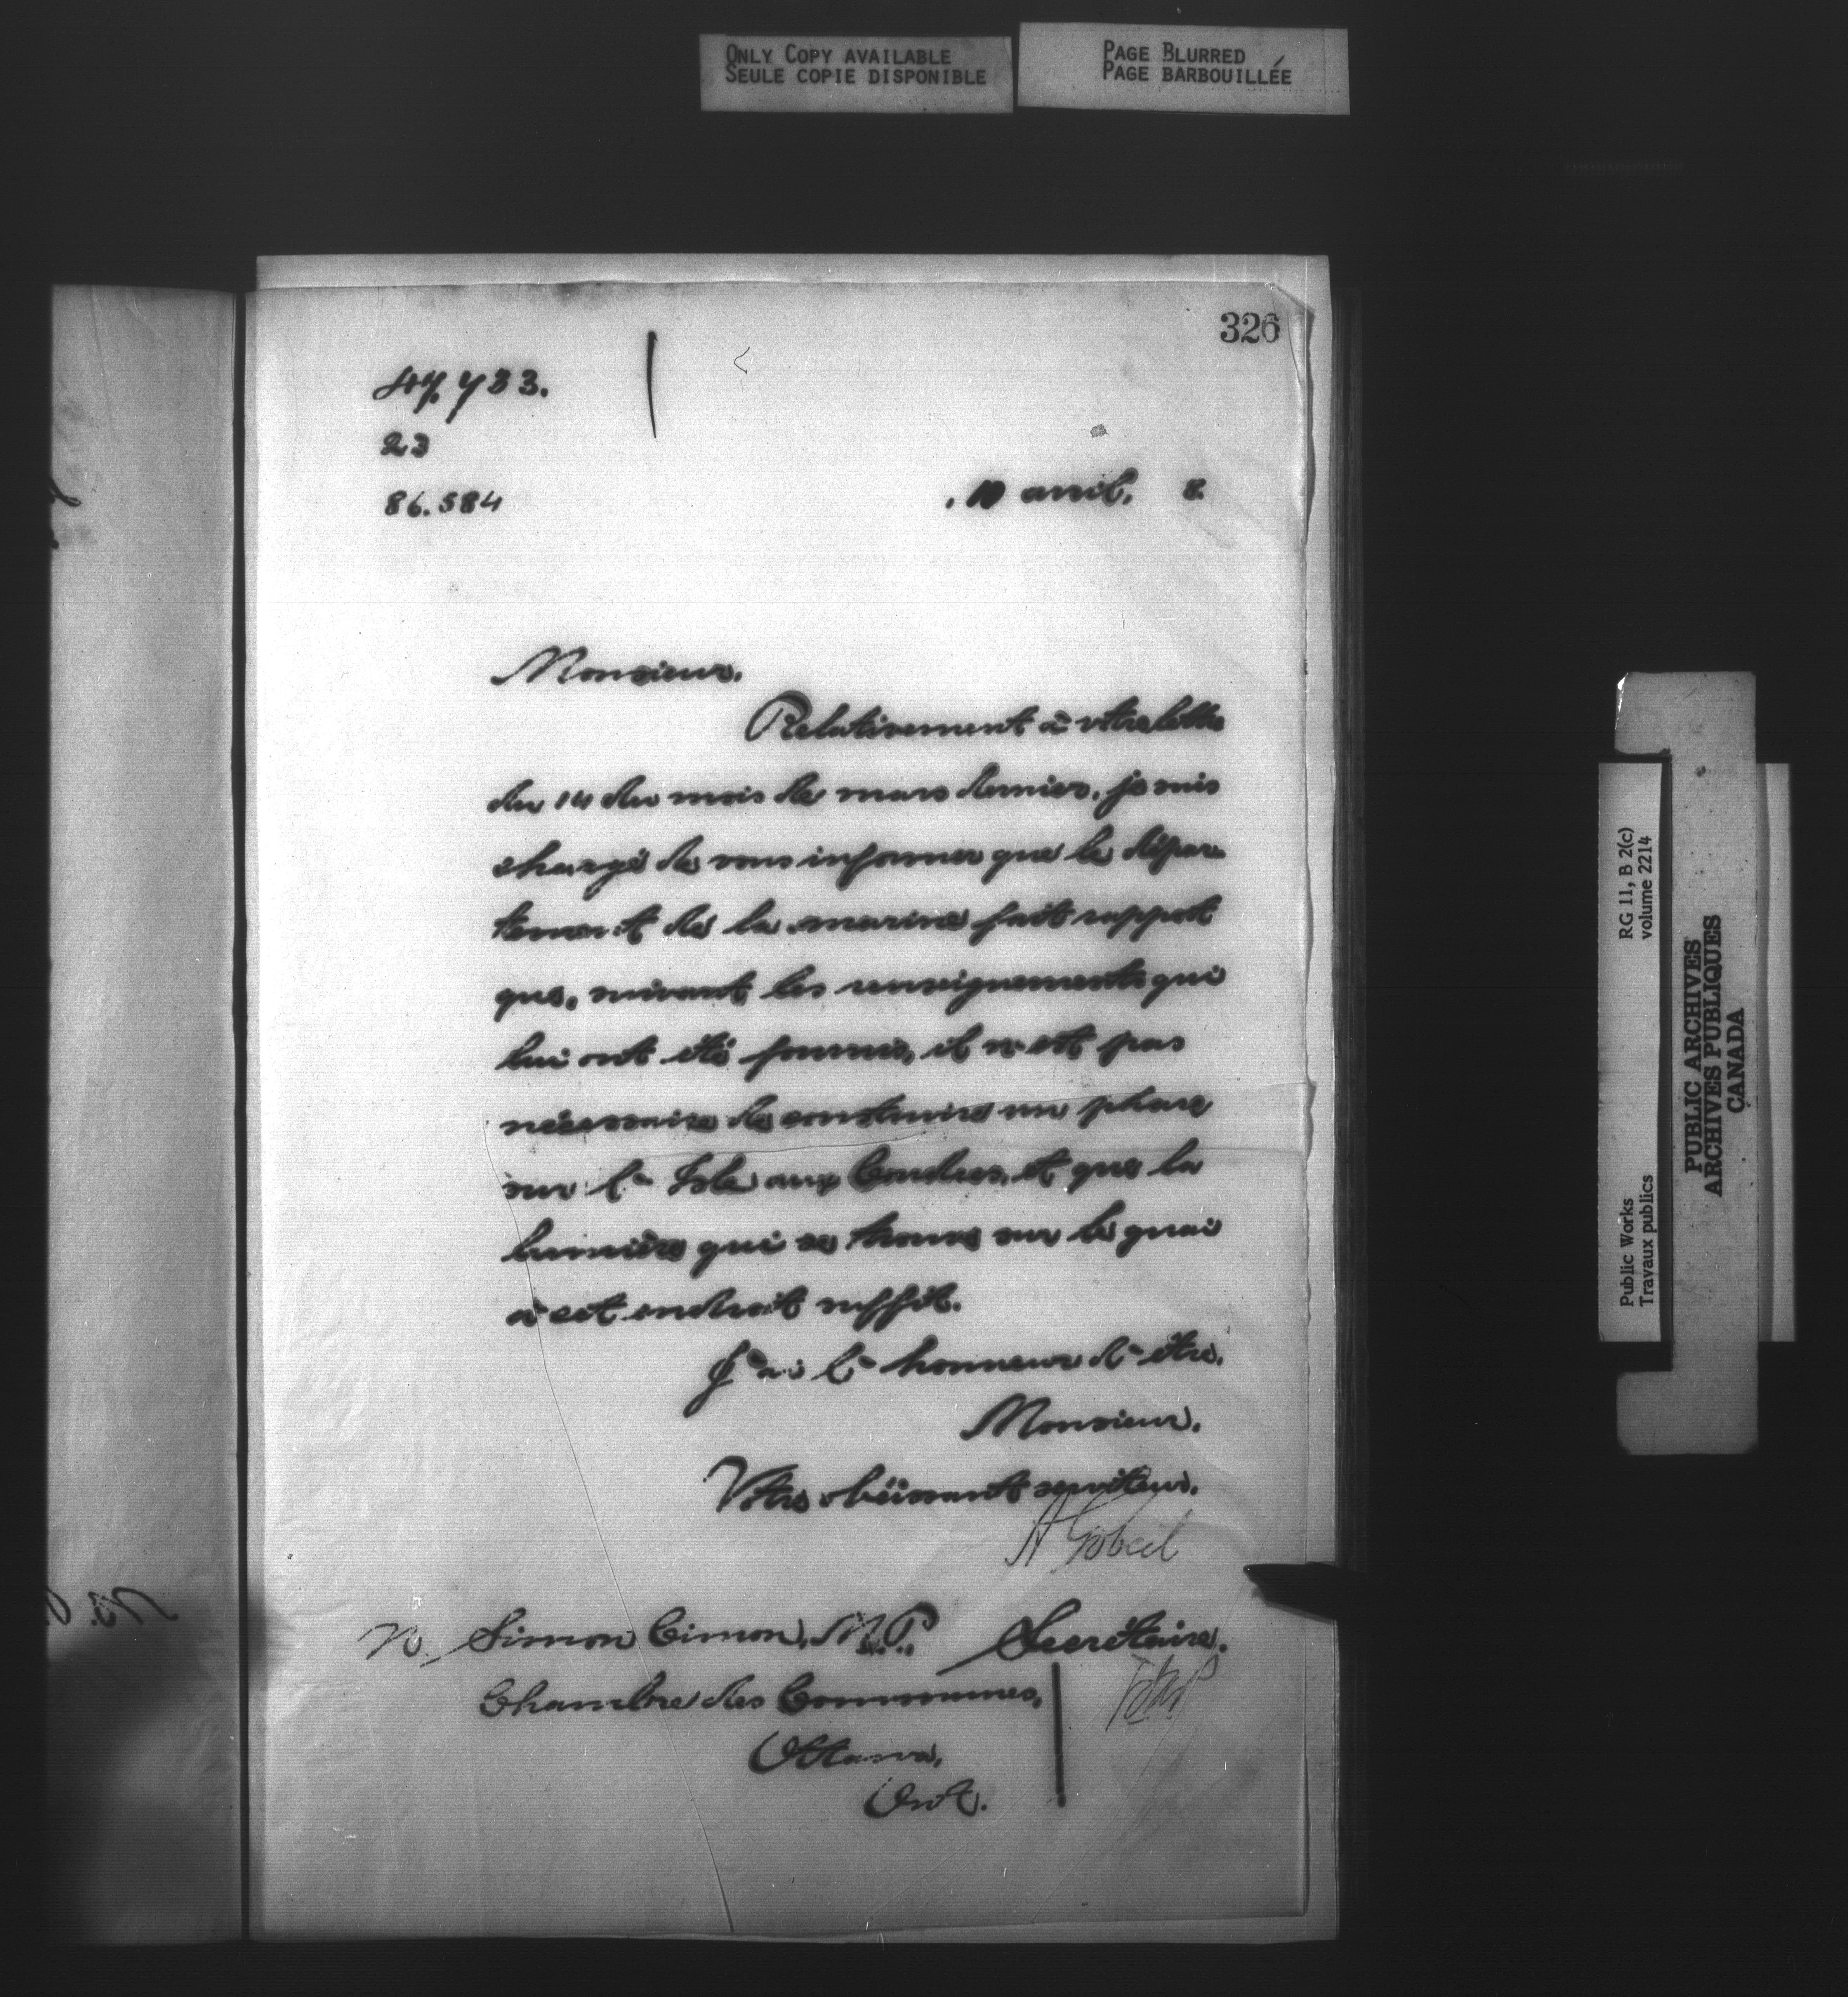 ONLY COPY AVAILABLE
SEULE COPIE DISPONIBLE
PAGE BLURRED
PAGE BARBOUILLÉE
326
47.733.
23
86.584
10 avril, 8
Monsieur,
Relativement à votre lettre
du 14 du mois de mars dernier, je suis
chargé de vous informer que le dépar
tement de la marine fait rapport
que, suivant les renseignements qui
lui ont été fournis, il n'est pas
nécessaire de construire un phare
sur l'Isle aux Coudres, et que la
lumière qui se trouve sur le quai
à cet endroit suffit.
J'ai l'honneur d'être,
Monsieur,
Votre obéissant serviteur,
A Gobeil
Secrétaire.
Simon Cimon, M.P.,
Chambre des Communes,
Ottawa,
Ont.
RG 11, B 2(c)
volume 2214
Public Works
Travaux publics
PUBLIC ARCHIVES
ARCHIVES PUBLIQUES
CANADA